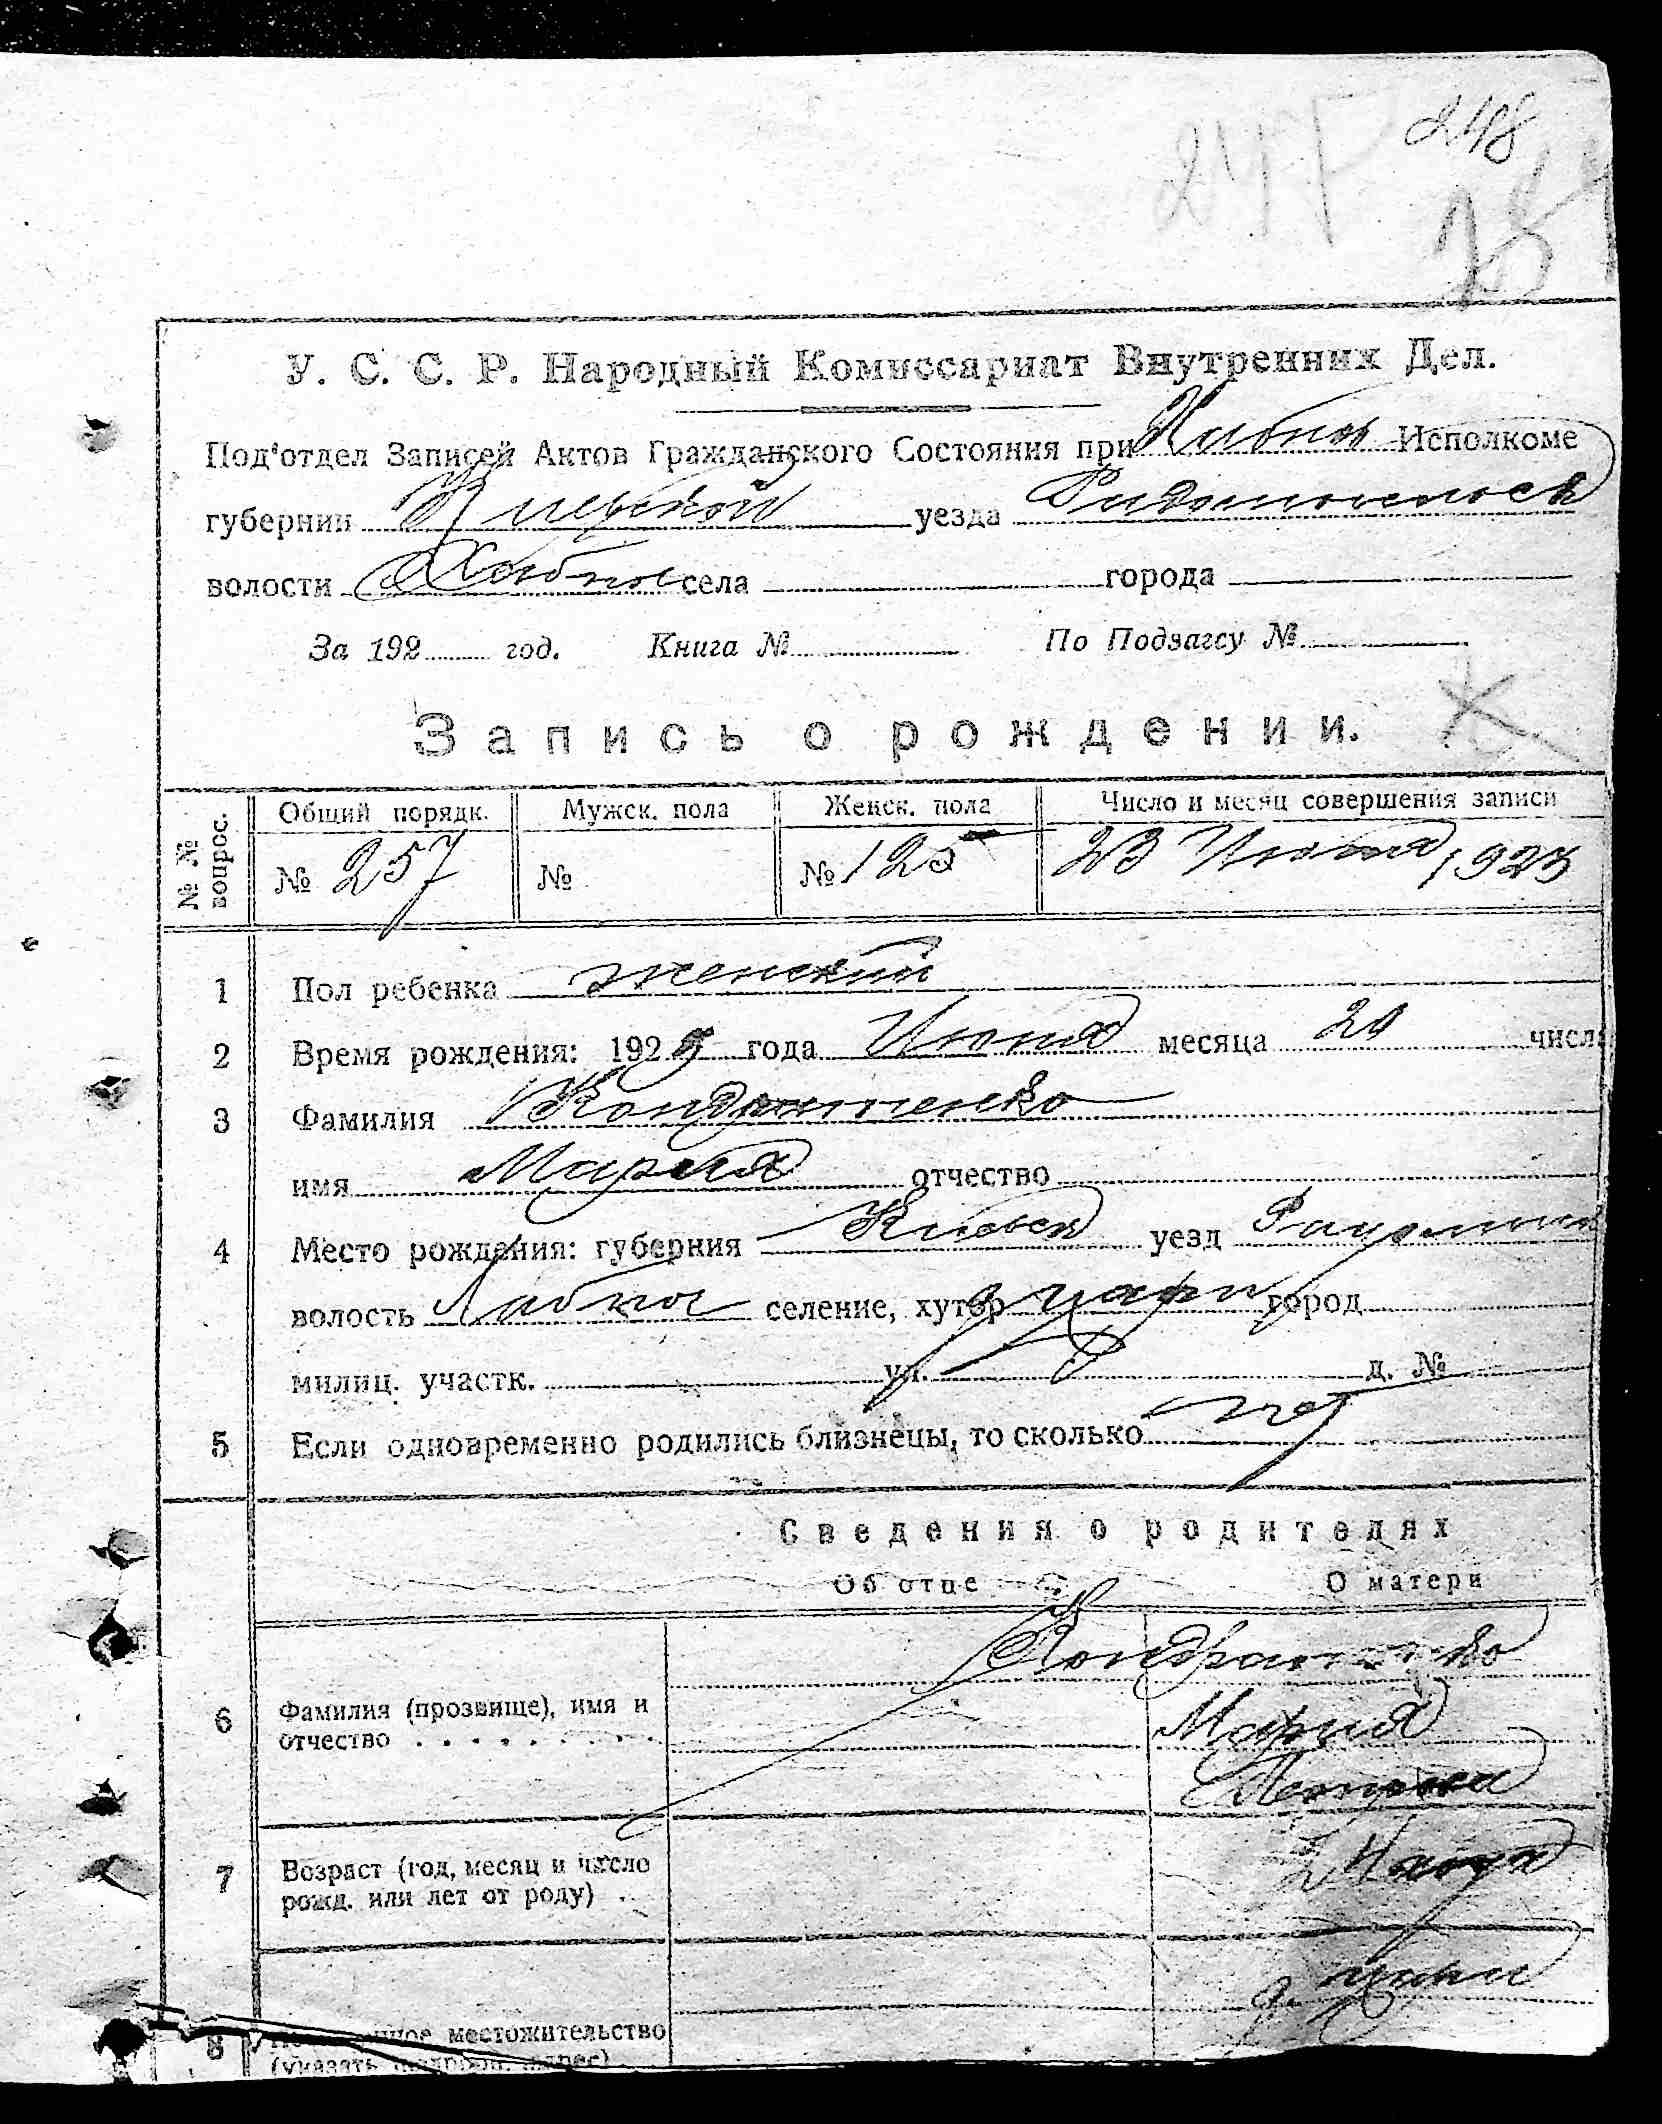 248
У. С. С. Р. Народный Комиссариат Внутренних Дел.
Под'отдел Записей Актов Гражданского Состояния при Исполкоме
губернии Киевской уезда
волости Хабное села города
За 192 год. Книга № По Подзагсу №
Запись о рождении.
№ № вопрос. Общий порядк. Мужск. пола Женск. пола Число и месяц совершения записи
№ 257 № № 125 23 Июня 1923
1 Пол ребенка женский
2 Время рождения: 192 года Июня месяца 20 числа
3 Фамилия Кондратенко
имя Мария отчество
4 Место рождения: губерния Киевск уезд
волость селение, хутор город
милиц. участк. ул. д. №
5 Если одновременно родились близнецы, то сколько нет
Сведения о родителях
Об отце О матери
Кондратенко
6 Фамилия (прозвище), имя и отчество Мария
7 Возраст (год, месяц и число рожд. или лет от роду)
8 местожительство
(указать адрес)